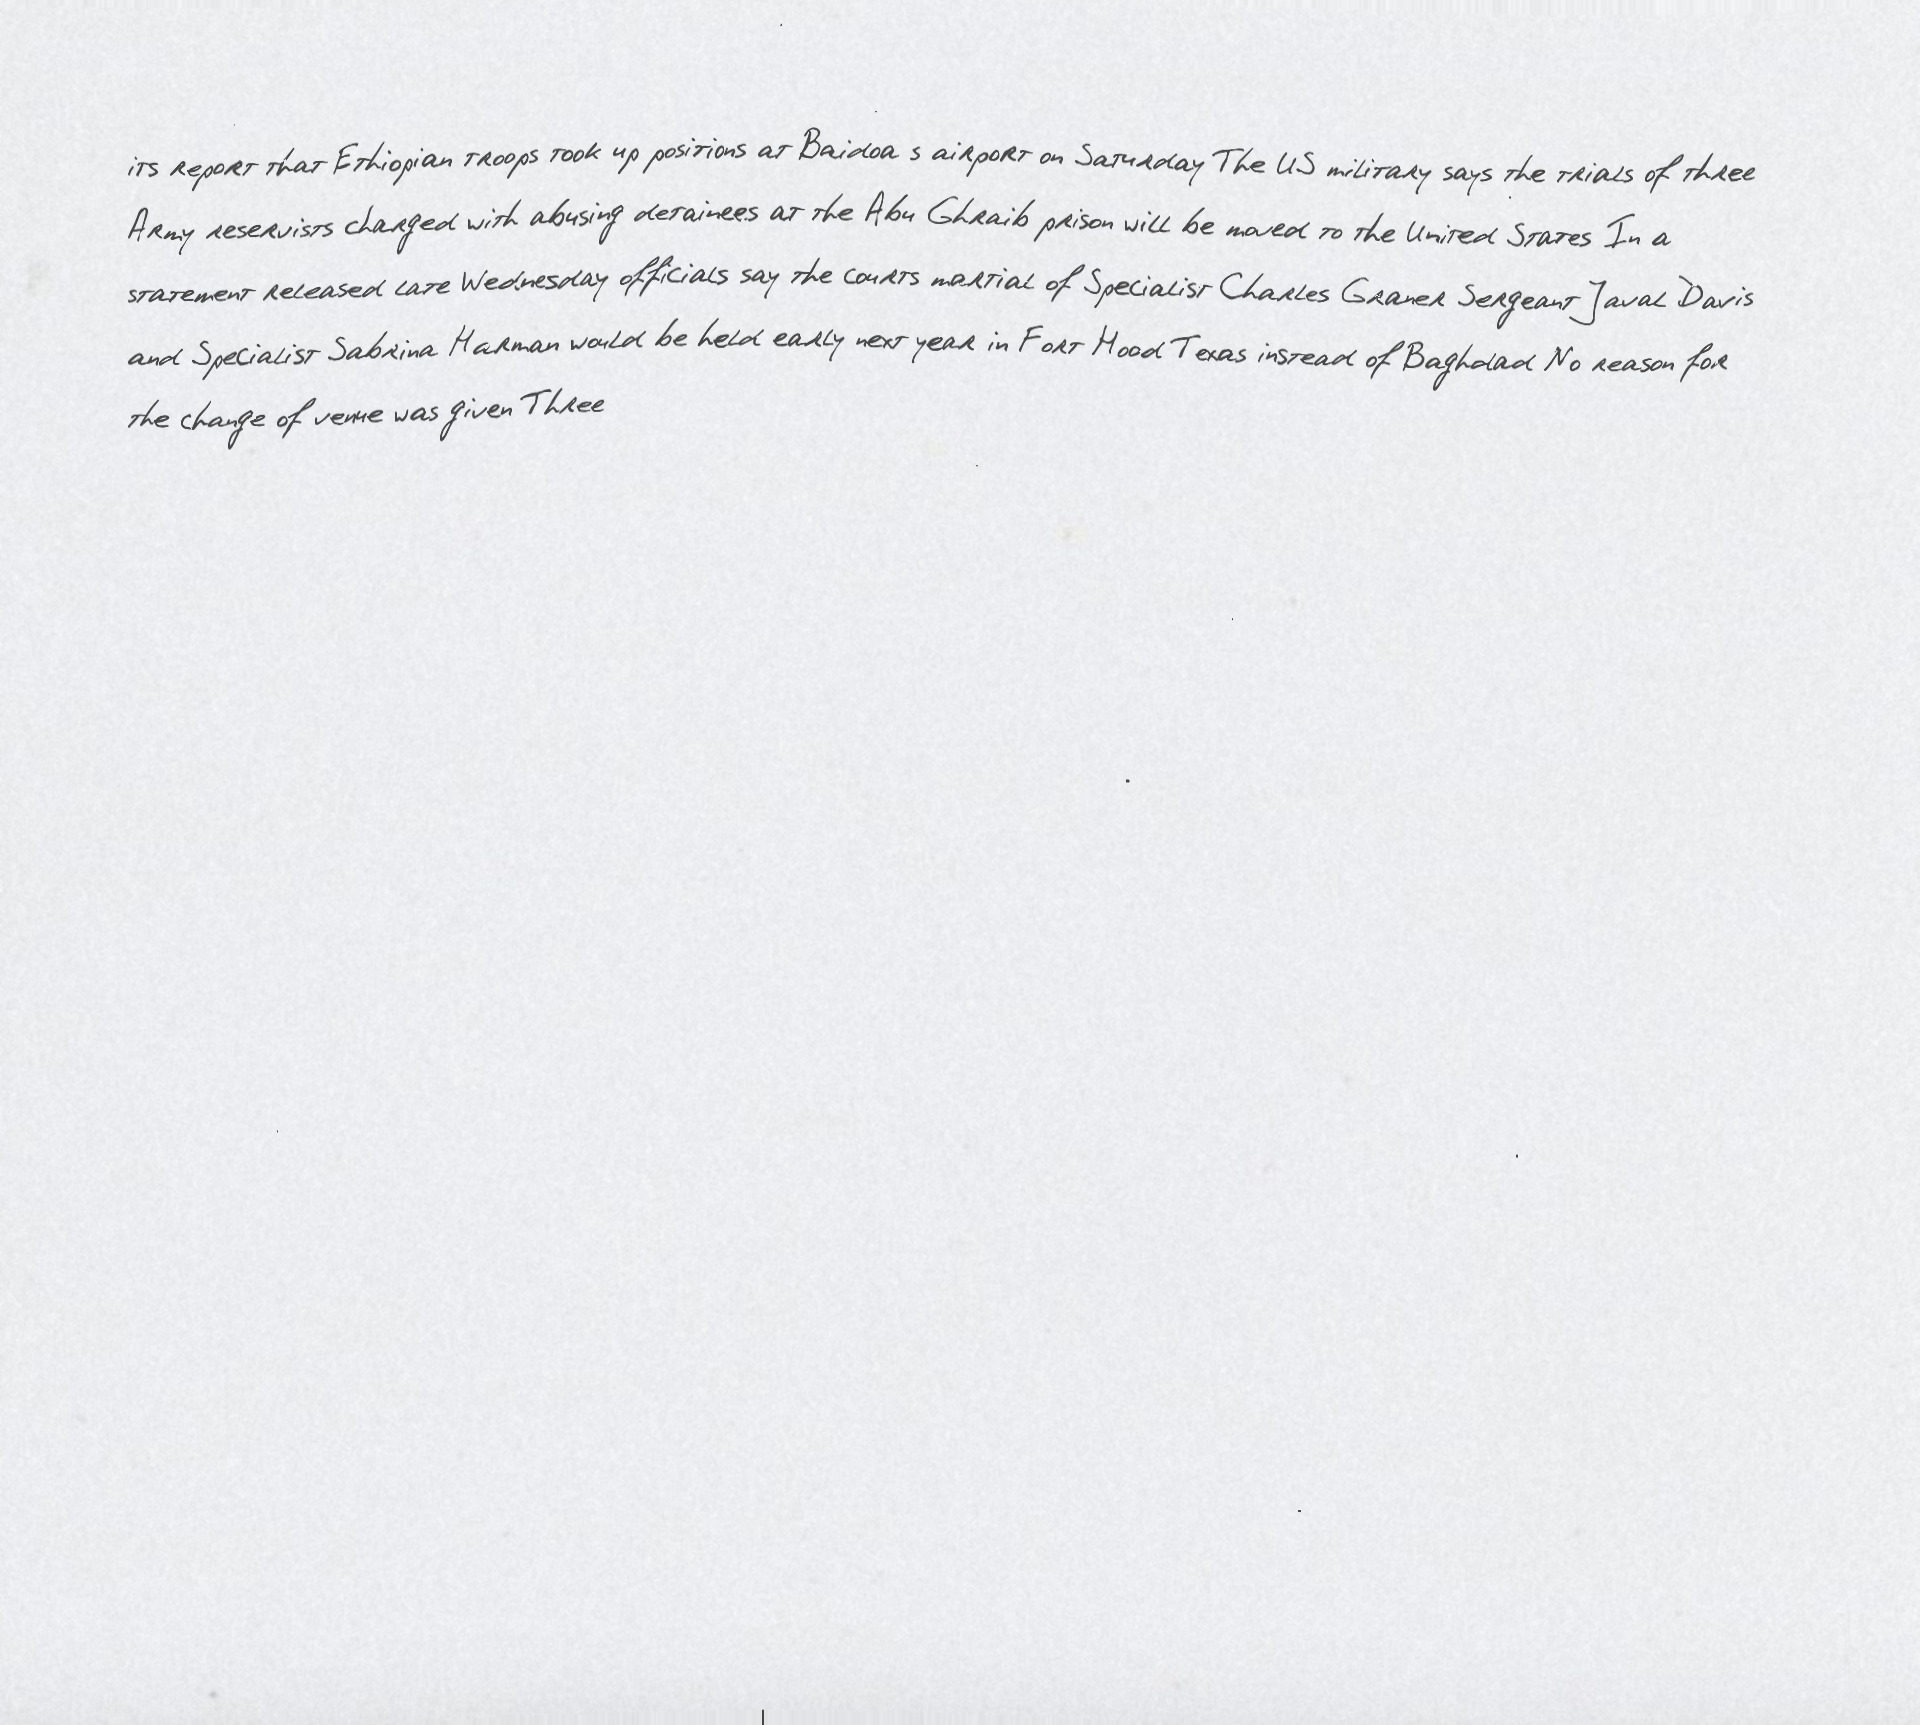 its report that Ethiopian troops took up positions at Baidoa s airport on Saturday The US military says the trials of three
Army reservists charged with abusing detainees at the Abu Ghraib prison will be moved to the United States In a
statement released late Wednesday officials say the courts martial of Specialist Charles Graner Sergeant Javal Davis
and Specialist Sabrina Harman would be held early next year in Fort Hood Texas instead of Baghdad No reason for
the change of venue was given Three